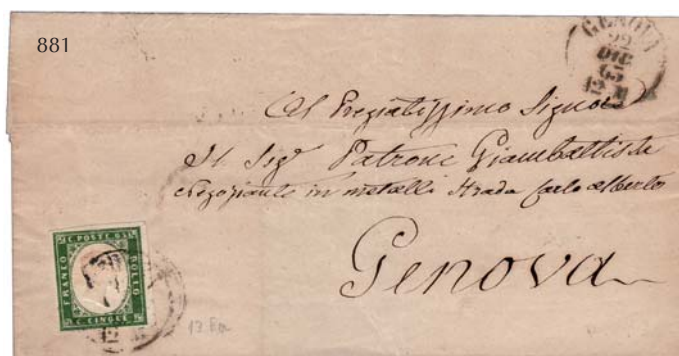 881
GENOVA
22
DIC
63
12 M
Al Pregiatissimo Signor
Il Sigr Patrone Giambattista
Negoziante in metalli Strada Carlo Alberto
Genova
C. POSTE
FRANCO
BOLLO
C. CINQUE
12
13 Em